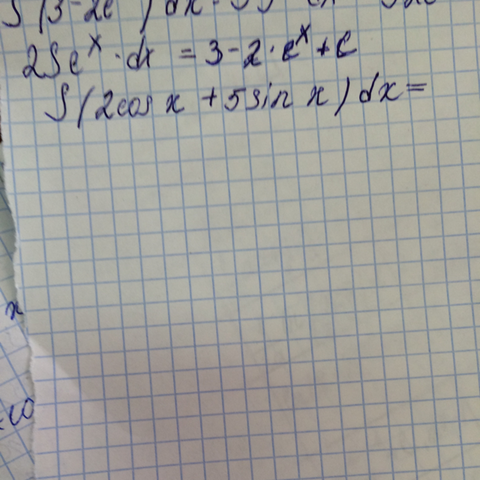 ∫(3-2e
2∫e^x · dx = 3-2·e^x+c
∫(2cos x + 5sin x) dx =
x